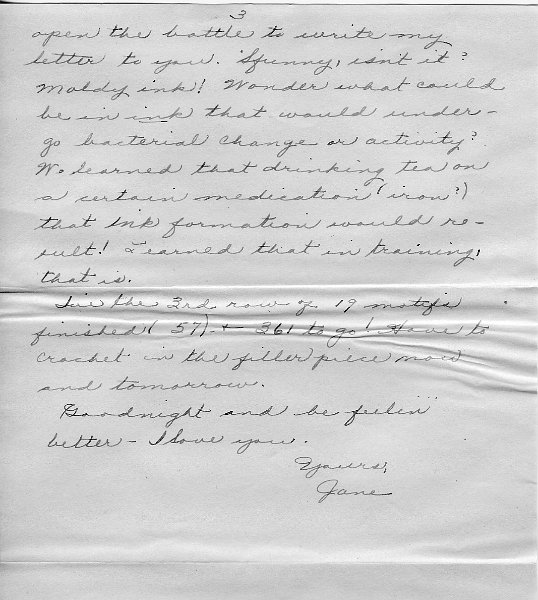 3
open the bottle to write my
letter to you. 'Sfunny, isn't it?
Moldy ink! Wonder what could
be in ink that would under-
go bacterial change or activity?
We learned that drinking tea on
a certain medication (iron?)
that ink formation would re-
sult! Learned that in training,
that is.
I've the 3rd row of 19 motifs
finished (57) + 361 to go! Have to
crochet in the filler piece now
and tomorrow.
Goodnight and be feelin'
better - I love you.
Yours,
Jane